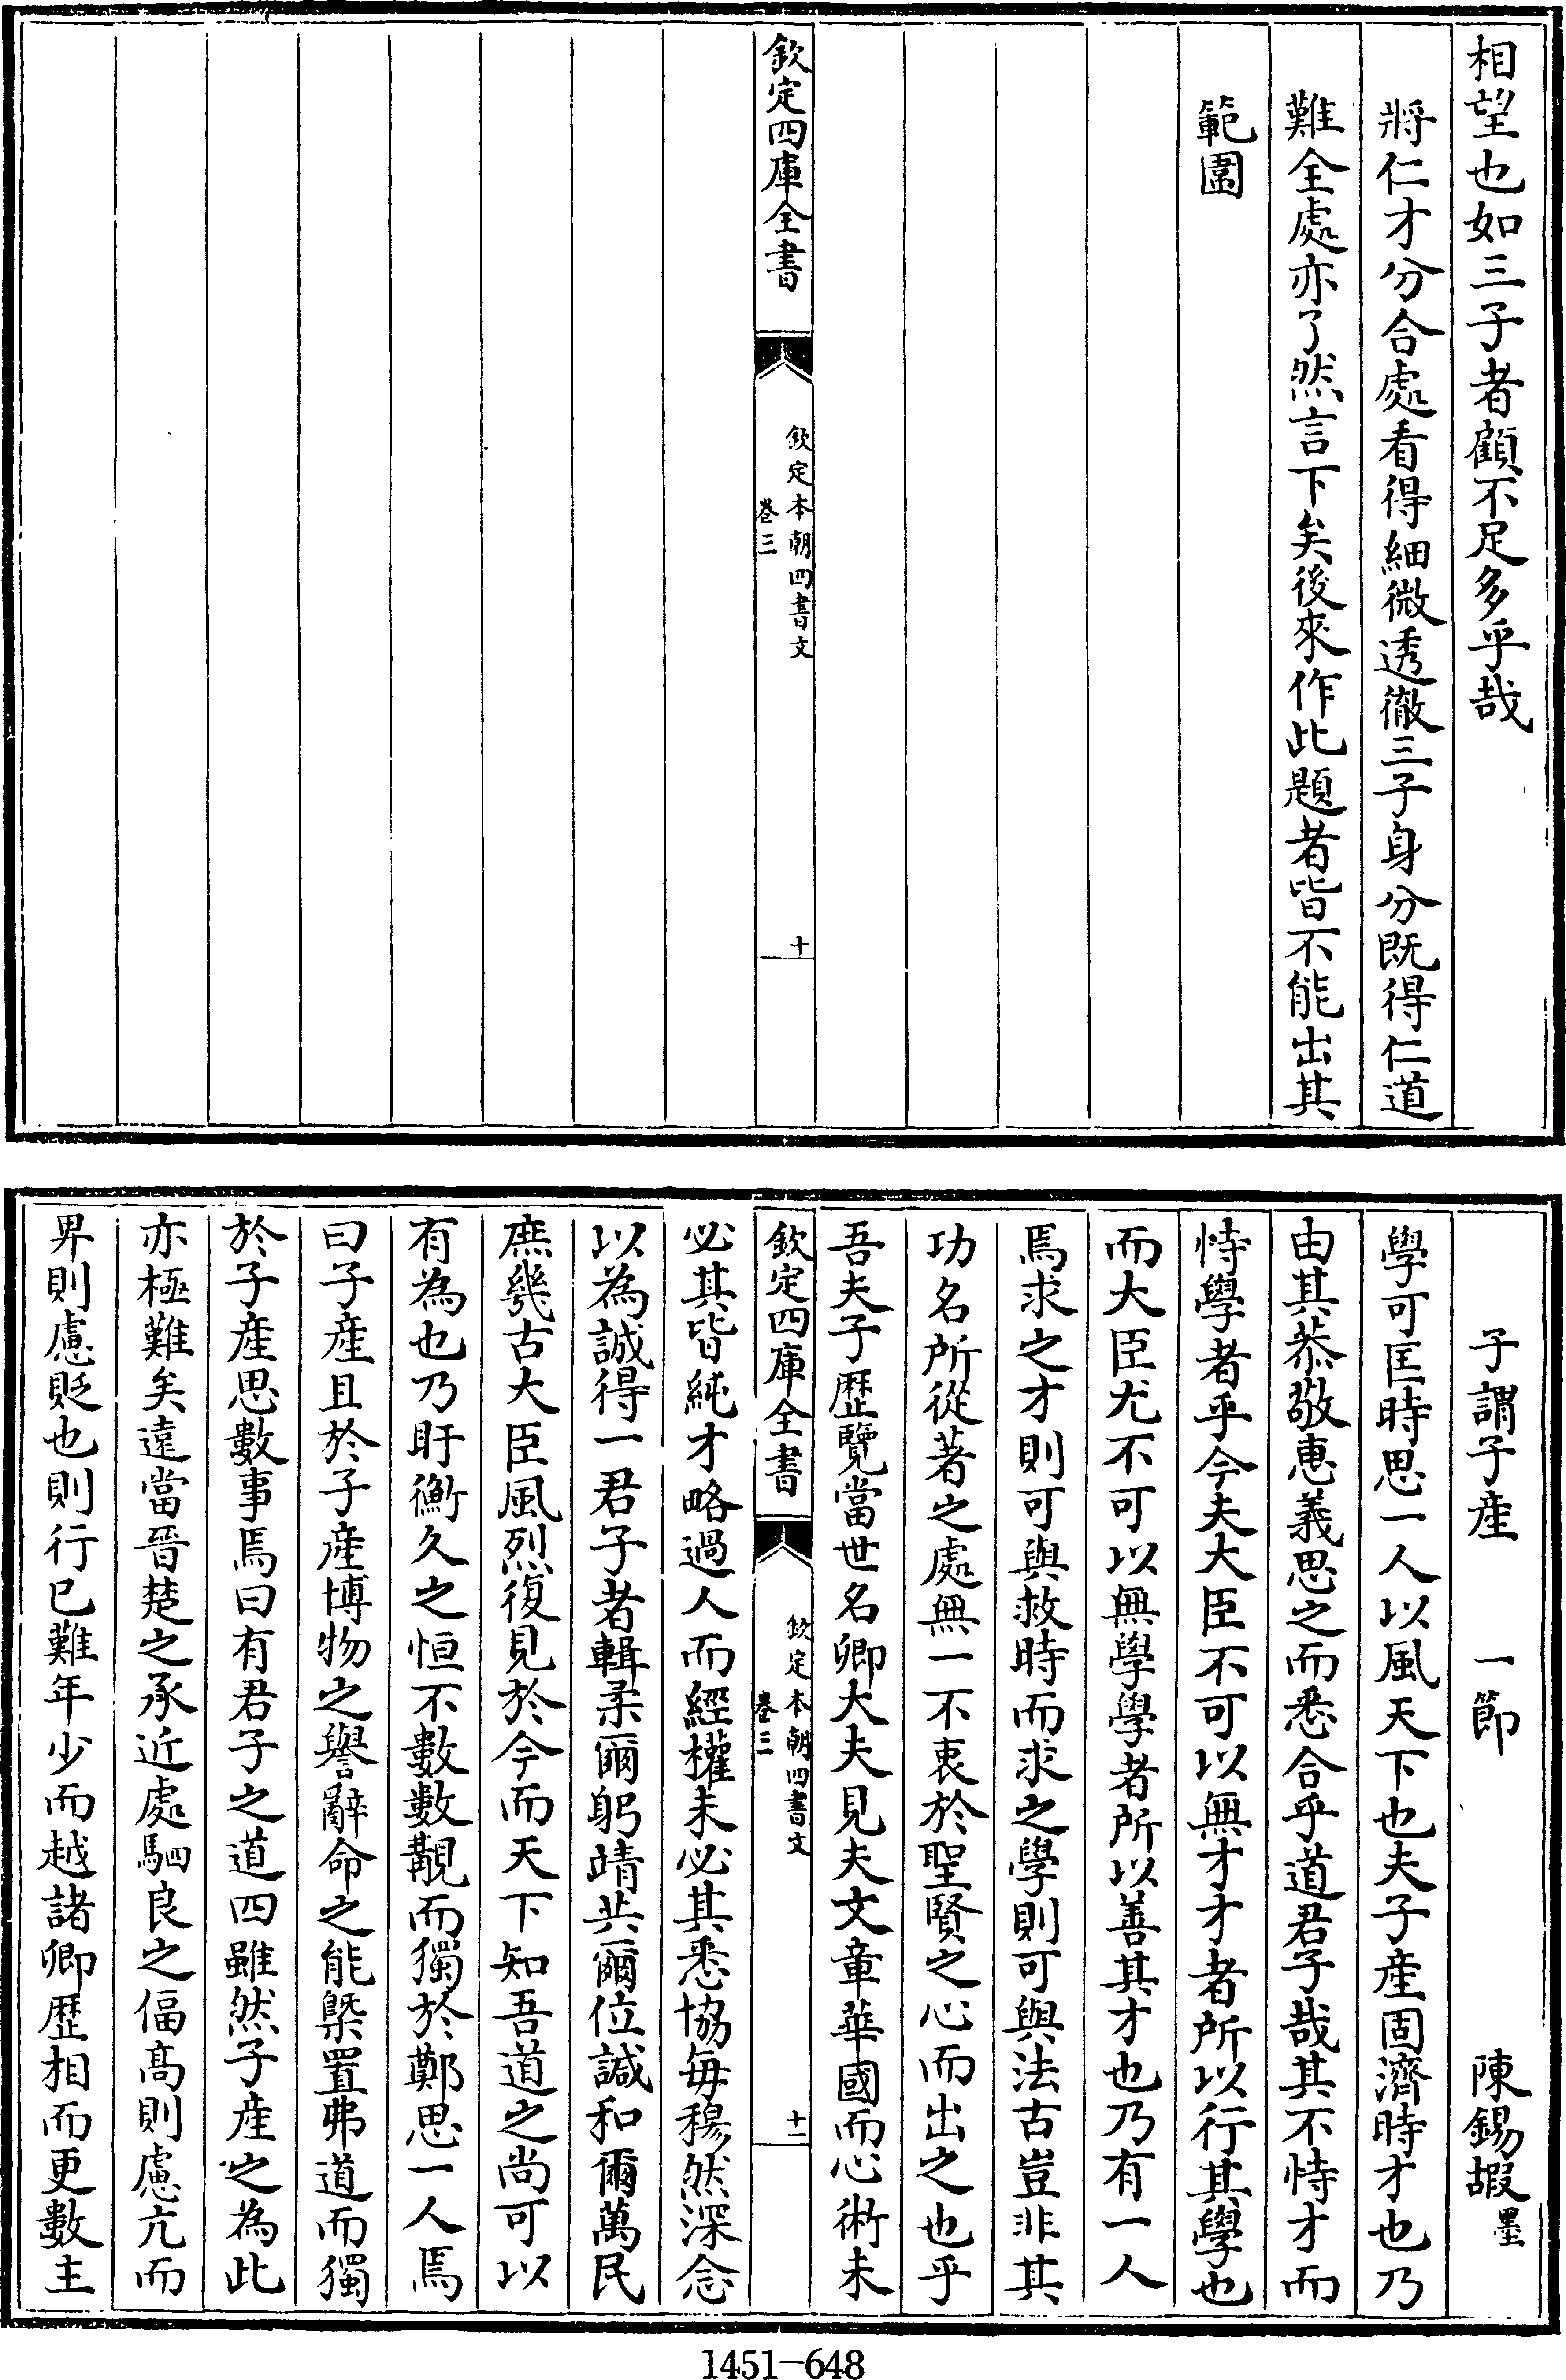 相望也如三子者顧不足多乎哉
將仁才分合處看得細微透徹三子身分既得仁道
難全處亦了然言下矣後來作此題者皆不能出其
範圍
欽定四庫全書
欽定本朝四書文
卷三
十
子謂子產 一節 陳錫嘏墨
學可匡時思一人以風天下也夫子產固濟時才也乃
由其恭敬惠義思之而悉合乎道君子哉其不恃才而
恃學者乎今夫大臣不可以無才才者所以行其學也
而大臣尤不可以無學學者所以善其才也乃有一人
焉求之才則可與救時而求之學則可與法古豈非其
功名所從著之處無一不衷於聖賢之心而出之也乎
吾夫子歷覽當世名卿大夫見夫文章華國而心術未
欽定四庫全書
欽定本朝四書文
卷三
十一
必其皆純才略過人而經權未必其悉協每穆然深念
以為誠得一君子者輯柔爾躬靖共爾位諴和爾萬民
庶幾古大臣風烈復見於今而天下知吾道之尚可以
有為也乃盱衡久之恒不數數覯而獨於鄭思一人焉
曰子產且於子產博物之譽辭命之能槩置弗道而獨
於子產思數事焉曰有君子之道四雖然子產之為此
亦極難矣遠當晉楚之承近處駟良之偪高則慮亢而
卑則慮貶也則行已難年少而越諸卿歷相而更數主
1451-648